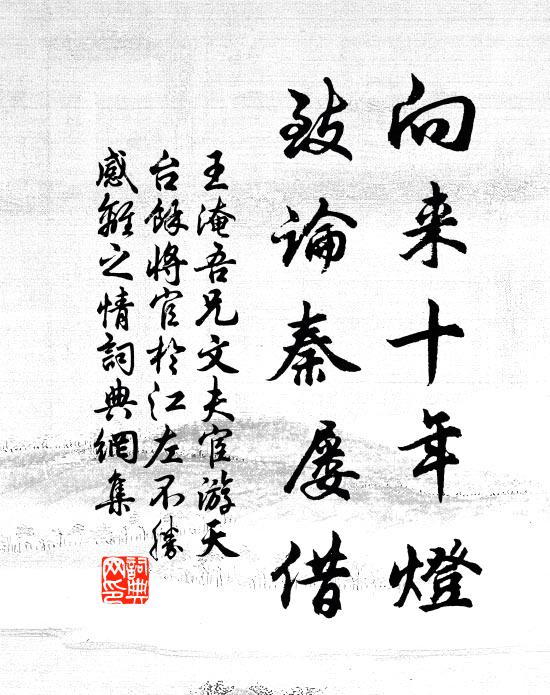 向来十年燈
致論秦屡借
王淹吾兄文夫宦游天
台餘将官於江左不勝
感離之情詞典網集
詞典網印